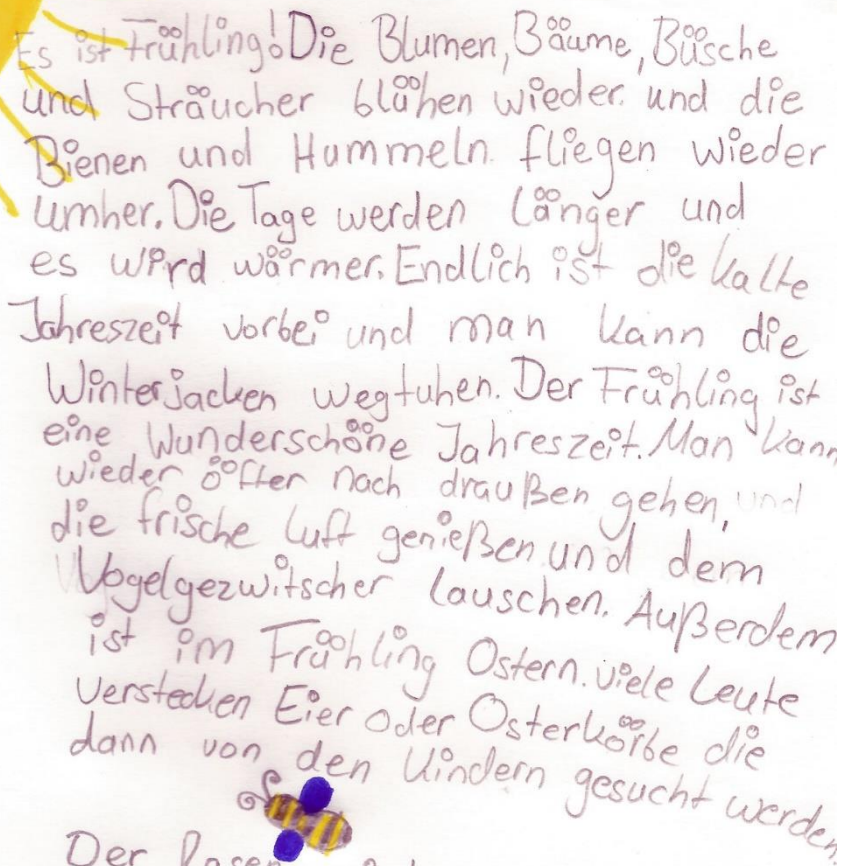 Es ist Frühling! Die Blumen, Bäume, Büsche
und Sträucher blühen wieder. und die
Bienen und Hummeln fliegen wieder
umher. Die Tage werden länger und
es wird wärmer. Endlich ist die kalte
Jahreszeit vorbei und man kann die
Winterjacken wegtuhen. Der Frühling ist
eine Wunderschöne Jahreszeit. Man kann
wieder öffter nach draußen gehen, und
die frische Luft genießen und dem
Vogelgezwitscher lauschen. Außerdem
ist im Frühling Ostern. viele Leute
verstecken Eier oder Osterkörbe die
dann von den Kindern gesucht werden.
Der